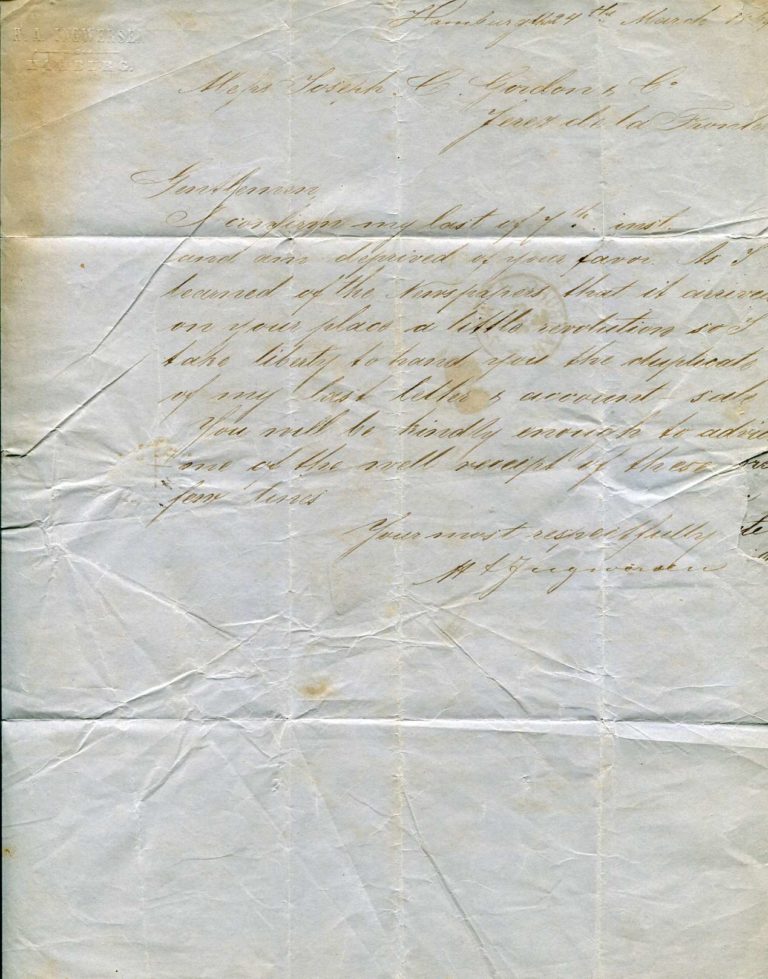 HAMBURG.
Hamburg the 24th March
Messrs Joseph C. Gordon & Co
Jerez de la Fronte
Gentlemen
I confirm my last of 7th inst.
and am deprived of your favor. As I
learned of the Newspapers, that it arrive
on your place a little revolution so I
take liberty to hand you the duplicate
of my last letter & account-sale
You will be kindly enough to advi
me of the well receipt of these
few lines
Your most respectfully
H A Ingwersen